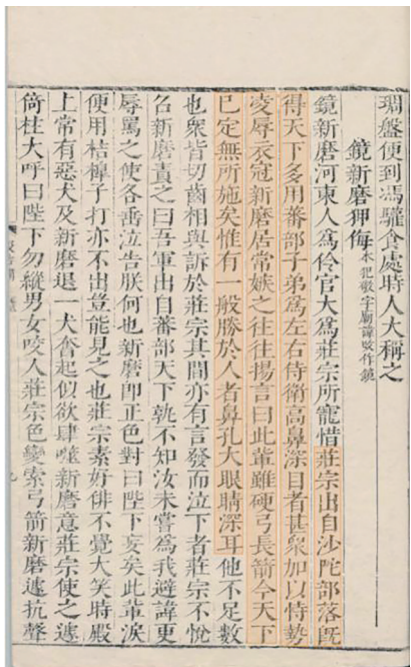 琱盤便到馮驩食處時人大稱之
鏡新磨狎侮本犯敬字廟諱改作鏡
鏡新磨河東人爲伶官大爲莊宗所寵惜莊宗出自沙陀部落旣
得天下多用蕃部子弟爲左右侍衛高鼻深目者甚衆加以恃勢
凌辱衣冠新磨居常嫉之往往揚言曰此輩雖硬弓長箭今天下
已定無所施矣惟有一般勝於人者鼻孔大眼睛深耳他不足數
也衆皆切齒相與訴於莊宗其間亦有言發而泣下者莊宗不悅
召新磨責之曰吾軍出自蕃部天下孰不知汝未嘗爲我避諱更
辱罵之使各垂泣告朕何也新磨卽正色對曰陛下妄矣此輩淚
便用桔槔子打亦不出豈能見之也莊宗素好俳不覺大笑時殿
上常有惡犬及新磨退一犬奮起似欲肆噬新磨意莊宗使之遽
倚柱大呼曰陛下勿縱男女咬人莊宗色變索弓箭新磨遽抗聲